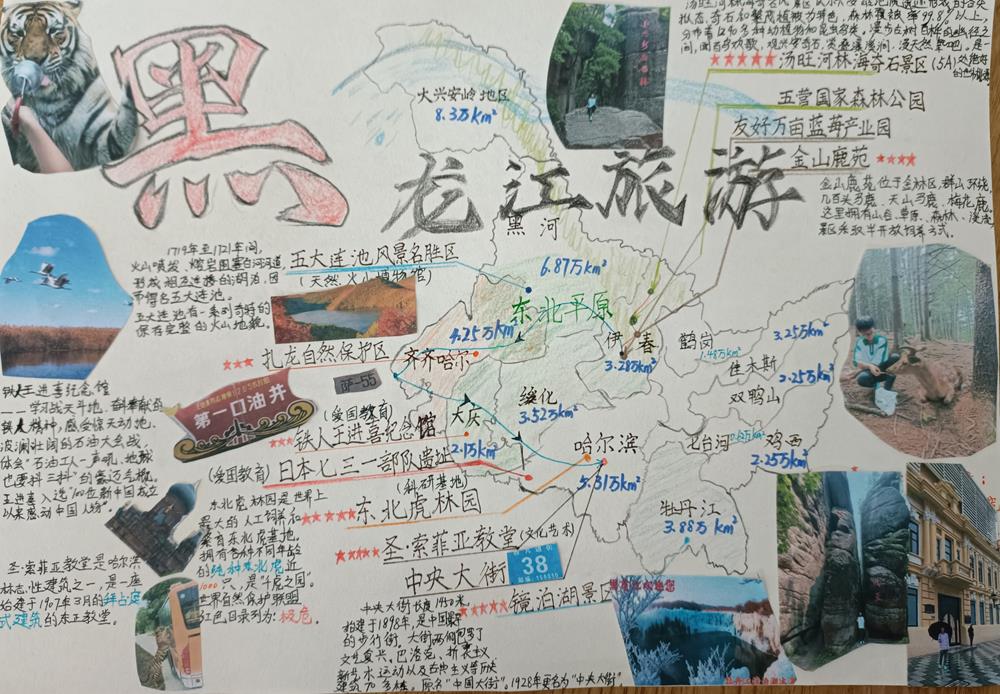 黑
龙江旅游
大兴安岭地区
8.3万km²
汤旺河林海奇石景区(5A)
五营国家森林公园
友好万亩蓝莓产业园
金山鹿苑
金山鹿苑位于金林区,群山环绕,
几百头马鹿、天山马鹿、梅花鹿。
景区采取半开放饲养方式。
黑河
6.87万km²
1719年至1721年间,
火山喷发,熔岩围塞白河河道
形成
五大连池。
五大连池有一系列奇特的
保存完整的火山地貌。
五大连池风景名胜区
(天然火山博物馆)
东北平原
4.25万km²
扎龙自然保护区
齐齐哈尔
伊春
3.28万km²
鹤岗
1.48万km²
3.25万km²
佳木斯
2.25万km²
双鸭山
铁人王进喜纪念馆
——学习战天斗地、奋斗奉献的
铁人精神,感受惊天动地、
波澜壮阔的石油大会战,
体会"石油工人一声吼,地球
也要抖三抖"的豪迈气概。
王进喜入选"100位新中国成立
以来感动中国人物"。
第一口油井
萨-55
(爱国教育)
铁人王进喜纪念馆
大庆
2.1万km²
绥化
3.52万km²
(爱国教育)
日本七三一部队遗址
(科研基地)
哈尔滨
5.31万km²
七台河
鸡西
2.25万km²
牡丹江
3.88万km²
东北虎林园
东北虎林园是世界上
最大的人工饲养和
东北虎基地。
拥有各种不同年龄
的纯种东北虎近
1000只,是"千虎之园"。
世界自然保护联盟
红色目录列为:极危。
圣·索菲亚教堂(文化艺术)
圣·索菲亚教堂是哈尔滨
标志性建筑之一,是一座
始建于1907年3月的拜占庭
式建筑的东正教堂。
中央大街
38
中央大街长度1450米
始建于1898年,是中国
的步行街。大街两侧包罗了
文艺复兴、巴洛克、折衷主义
新艺术运动以及古典主义等历史
原名"中国大街"。1928年更名为"中央大街"
镜泊湖景区